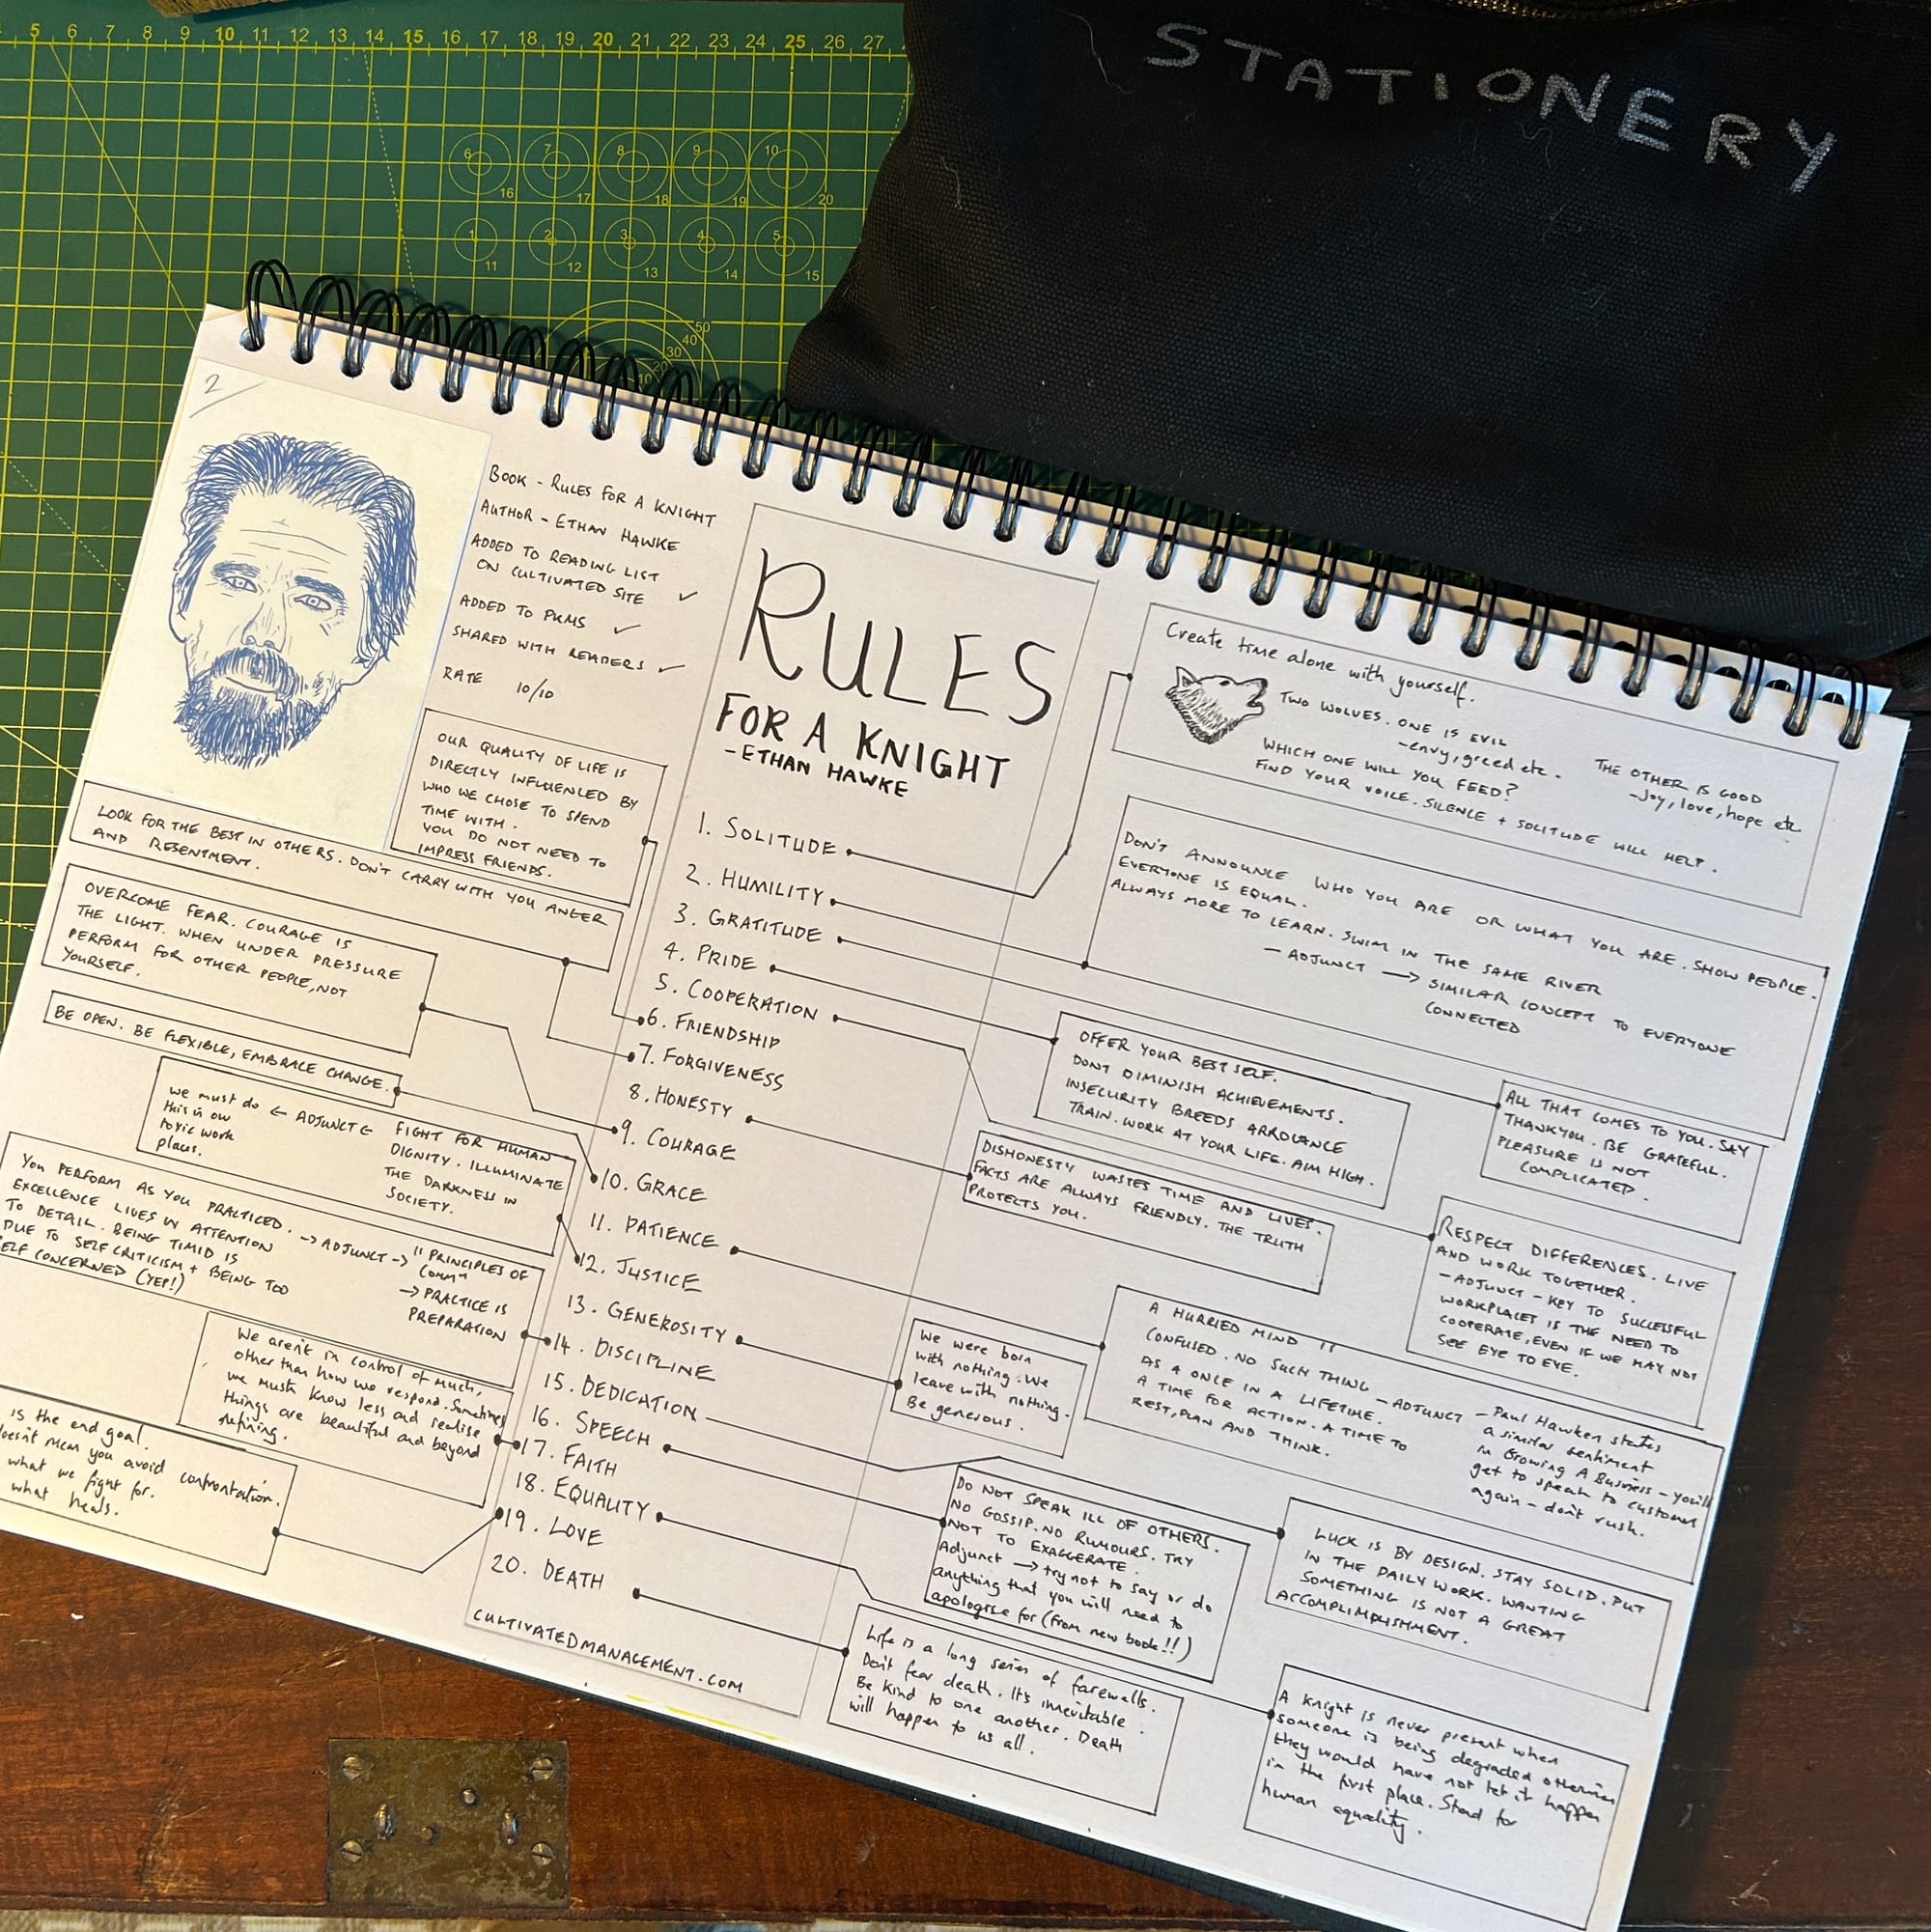 5 6 7 8 9 10 11 12 13 14 15 16 17 18 19 20 21 22 23 24 25 26 27
6 7 8 9 10
16 17 18 19 20
1 2 3 4 5
11 12 13 14 15
50
40
30
20
10
STATIONERY
2
BOOK - RULES FOR A KNIGHT
AUTHOR - ETHAN HAWKE
ADDED TO READING LIST
ON CULTIVATED SITE ✓
ADDED TO PKMS ✓
SHARED WITH READERS ✓
RATE 10/10
OUR QUALITY OF LIFE IS
DIRECTLY INFLUENCED BY
WHO WE CHOSE TO SPEND
TIME WITH.
YOU DO NOT NEED TO
IMPRESS FRIENDS.
LOOK FOR THE BEST IN OTHERS. DON'T CARRY WITH YOU ANGER
AND RESENTMENT.
OVERCOME FEAR. COURAGE IS
THE LIGHT. WHEN UNDER PRESSURE
PERFORM FOR OTHER PEOPLE, NOT
YOURSELF.
BE OPEN. BE FLEXIBLE, EMBRACE CHANGE.
we must do ← ADJUNCT ←
this in our
toxic work
places.
FIGHT FOR HUMAN
DIGNITY. ILLUMINATE
THE DARKNESS IN
SOCIETY.
YOU PERFORM AS YOU PRACTICED.
EXCELLENCE LIVES IN ATTENTION
TO DETAIL. BEING TIMID IS
DUE TO SELF CRITICISM + BEING TOO
SELF CONCERNED (YEP!)
→ ADJUNCT → "PRINCIPLES OF
COMM"
→ PRACTICE IS
PREPARATION
We aren't in control of much,
other than how we respond. Sometimes
we must know less and realise
things are beautiful and beyond
refining.
is the end goal.
doesn't mean you avoid confrontation.
what we fight for.
what heals.
RULES
FOR A KNIGHT
- ETHAN HAWKE
1. SOLITUDE
2. HUMILITY
3. GRATITUDE
4. PRIDE
5. COOPERATION
6. FRIENDSHIP
7. FORGIVENESS
8. HONESTY
9. COURAGE
10. GRACE
11. PATIENCE
12. JUSTICE
13. GENEROSITY
14. DISCIPLINE
15. DEDICATION
16. SPEECH
17. FAITH
18. EQUALITY
19. LOVE
20. DEATH
CULTIVATEDMANAGEMENT.COM
Create time alone with yourself.
TWO WOLVES. ONE IS EVIL
- envy, greed etc.
THE OTHER IS GOOD
- Joy, love, hope etc.
WHICH ONE WILL YOU FEED?
FIND YOUR VOICE. SILENCE + SOLITUDE WILL HELP.
DON'T ANNOUNCE WHO YOU ARE OR WHAT YOU ARE. SHOW PEOPLE.
EVERYONE IS EQUAL.
ALWAYS MORE TO LEARN. SWIM IN THE SAME RIVER
- ADJUNCT → SIMILAR CONCEPT TO EVERYONE
CONNECTED
OFFER YOUR BEST SELF.
DONT DIMINISH ACHIEVEMENTS.
INSECURITY BREEDS ARROGANCE
TRAIN. WORK AT YOUR LIFE. AIM HIGH.
ALL THAT COMES TO YOU. SAY
THANKYOU. BE GRATEFUL.
PLEASURE IS NOT
COMPLICATED.
DISHONESTY WASTES TIME AND LIVES.
FACTS ARE ALWAYS FRIENDLY. THE TRUTH
PROTECTS YOU.
RESPECT DIFFERENCES. LIVE
AND WORK TOGETHER.
- ADJUNCT - KEY TO SUCCESSFUL
WORKPLACES IS THE NEED TO
COOPERATE, EVEN IF WE MAY NOT
SEE EYE TO EYE.
A HURRIED MIND IS
CONFUSED. NO SUCH THING
AS A ONCE IN A LIFETIME.
A TIME FOR ACTION. A TIME TO
REST, PLAN AND THINK.
- ADJUNCT - Paul Hawken states
a similar sentiment
in Growing A Business - you'll
get to speak to customer
again - don't rush.
We were born
with nothing. We
leave with nothing.
Be generous.
DO NOT SPEAK ILL OF OTHERS.
NO GOSSIP. NO RUMOURS. TRY
NOT TO EXAGGERATE.
Adjunct → try not to say or do
anything that you will need to
apologise for (from new book!!)
LUCK IS BY DESIGN. STAY SOLID. PUT
IN THE DAILY WORK. WANTING
SOMETHING IS NOT A GREAT
ACCOMPLIMPLISHMENT.
Life is a long series of farewells.
Don't fear death. It's inevitable.
Be kind to one another. Death
will happen to us all.
A Knight is never present when
someone is being degraded otherwise
they would have not let it happen
in the first place. Stand for
human equality.